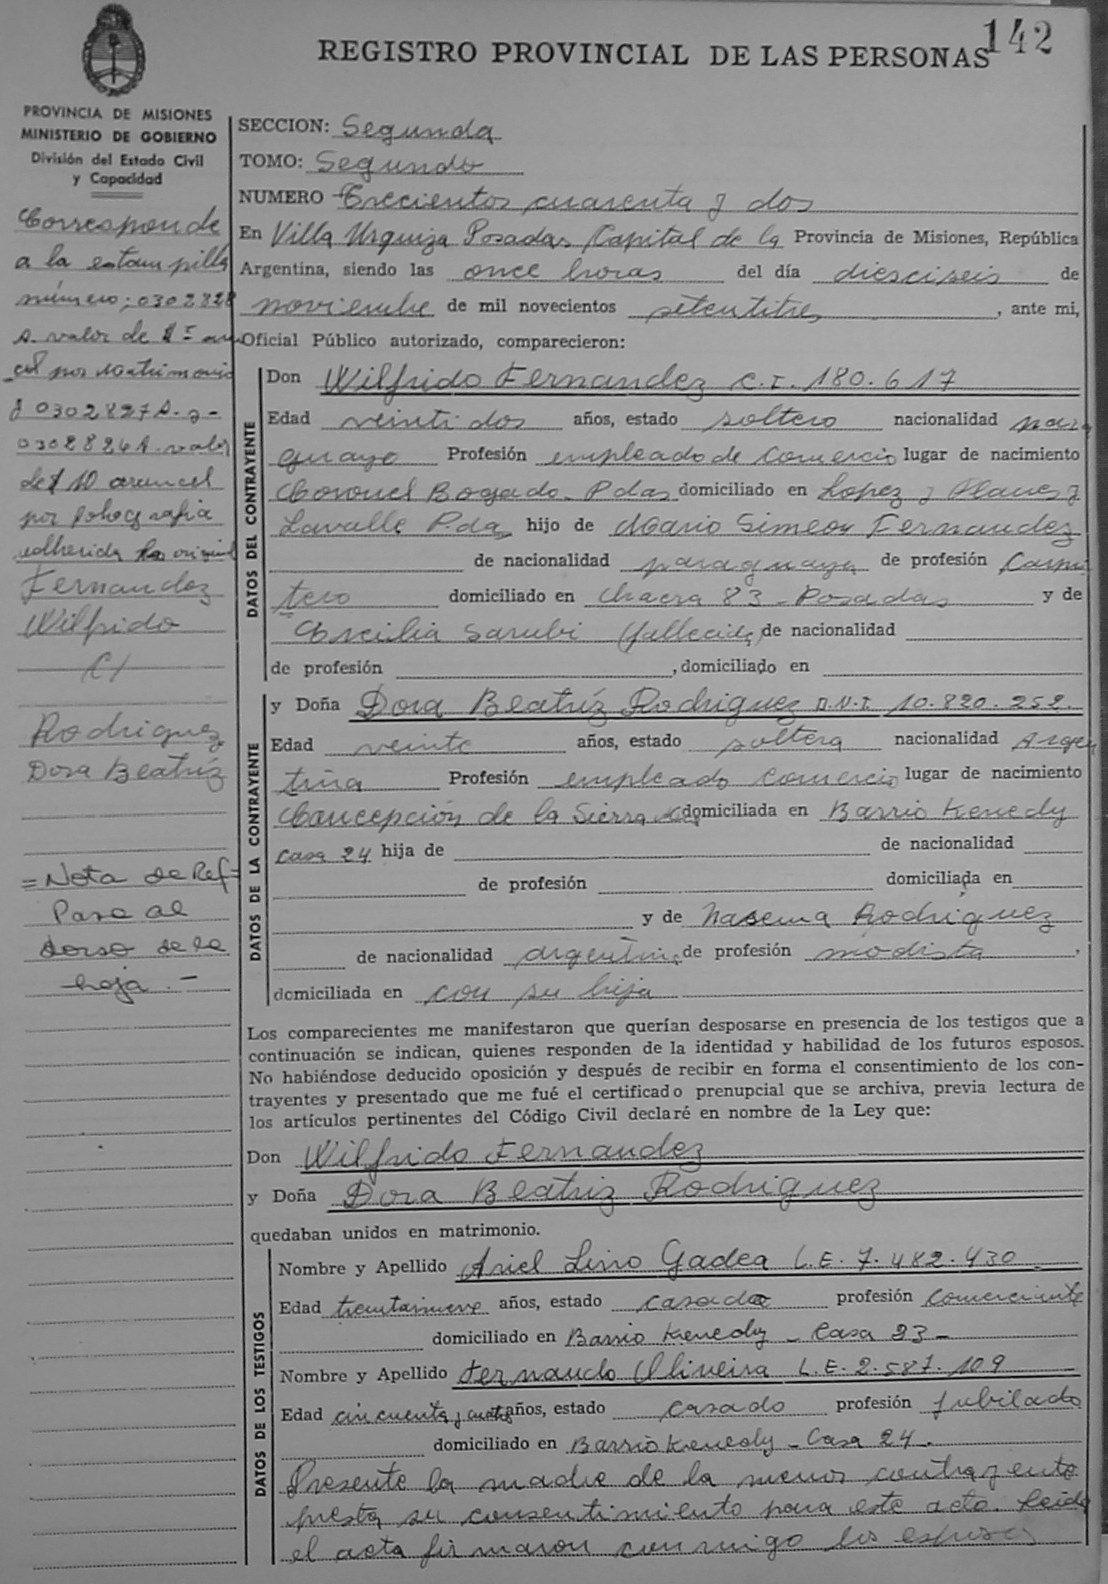 142
REGISTRO PROVINCIAL DE LAS PERSONAS
PROVINCIA DE MISIONES
MINISTERIO DE GOBIERNO
División del Estado Civil
y Capacidad
Corresponde
a la estampilla
número: 0302828
A. valor de
por Matrimonio
y 0302827 A. y -
0302826 A. valor
de $ 10 arancel
por fotografia
adherida original
Fernandez
Wilfrido
C/
Rodriguez
Dora Beatríz
= Nota de Ref =
Pasa al
dorso de la
hoja. -
SECCION: Segunda
TOMO: Segundo
NUMERO Trecientos cuarenta y dos
En Villa Urquiza Posadas Capital de la Provincia de Misiones, República
Argentina, siendo las once horas del día diesciseis de
noviembre de mil novecientos setentitres, ante mi,
Oficial Público autorizado, comparecieron:
DATOS DEL CONTRAYENTE
Don Wilfrido Fernandez C.I. 180.617
Edad veintidos años, estado soltero nacionalidad para
guayo Profesión empleado de Comercio lugar de nacimiento
Coronel Bogado - Pdas domiciliado en Lopez y Planes y
Lavalle Pdas hijo de Mario Simeon Fernandez
de nacionalidad paraguaya de profesión Carpin
tero domiciliado en Chacra 83 - Posadas y de
Cecilia Sarubi (fallecida) de nacionalidad
de profesión , domiciliado en
DATOS DE LA CONTRAYENTE
y Doña Dora Beatríz Rodriguez D.N.I. 10.820.252.
Edad veinte años, estado soltera nacionalidad Argen
tina Profesión empleado Comercio lugar de nacimiento
Concepción de la Sierra domiciliada en Barrio Kenedy
casa 24 hija de de nacionalidad
de profesión domiciliada en
y de Rodriguez
de nacionalidad argentina de profesión modista,
domiciliada en con su hija
Los comparecientes me manifestaron que querían desposarse en presencia de los testigos que a
continuación se indican, quienes responden de la identidad y habilidad de los futuros esposos.
No habiéndose deducido oposición y después de recibir en forma el consentimiento de los con-
trayentes y presentado que me fué el certificado prenupcial que se archiva, previa lectura de
los artículos pertinentes del Código Civil declaré en nombre de la Ley que:
Don Wilfrido Fernandez
y Doña Dora Beatriz Rodriguez
quedaban unidos en matrimonio.
DATOS DE LOS TESTIGOS
Nombre y Apellido Ariel Lino Gadea L.E. 7.482.430
Edad treintainueve años, estado casado profesión comerciante
domiciliado en Barrio Kenedy - Casa 23 -
Nombre y Apellido Fernando Oliveira L.E. 2.587.109
Edad cincuenta y cuatro años, estado casado profesión jubilado
domiciliado en Barrio Kenedy - Casa 24.
Presente la madre de la menor contrayente
presta su consentimiento para este acto. Leida
el acta firmaron conmigo los esposos